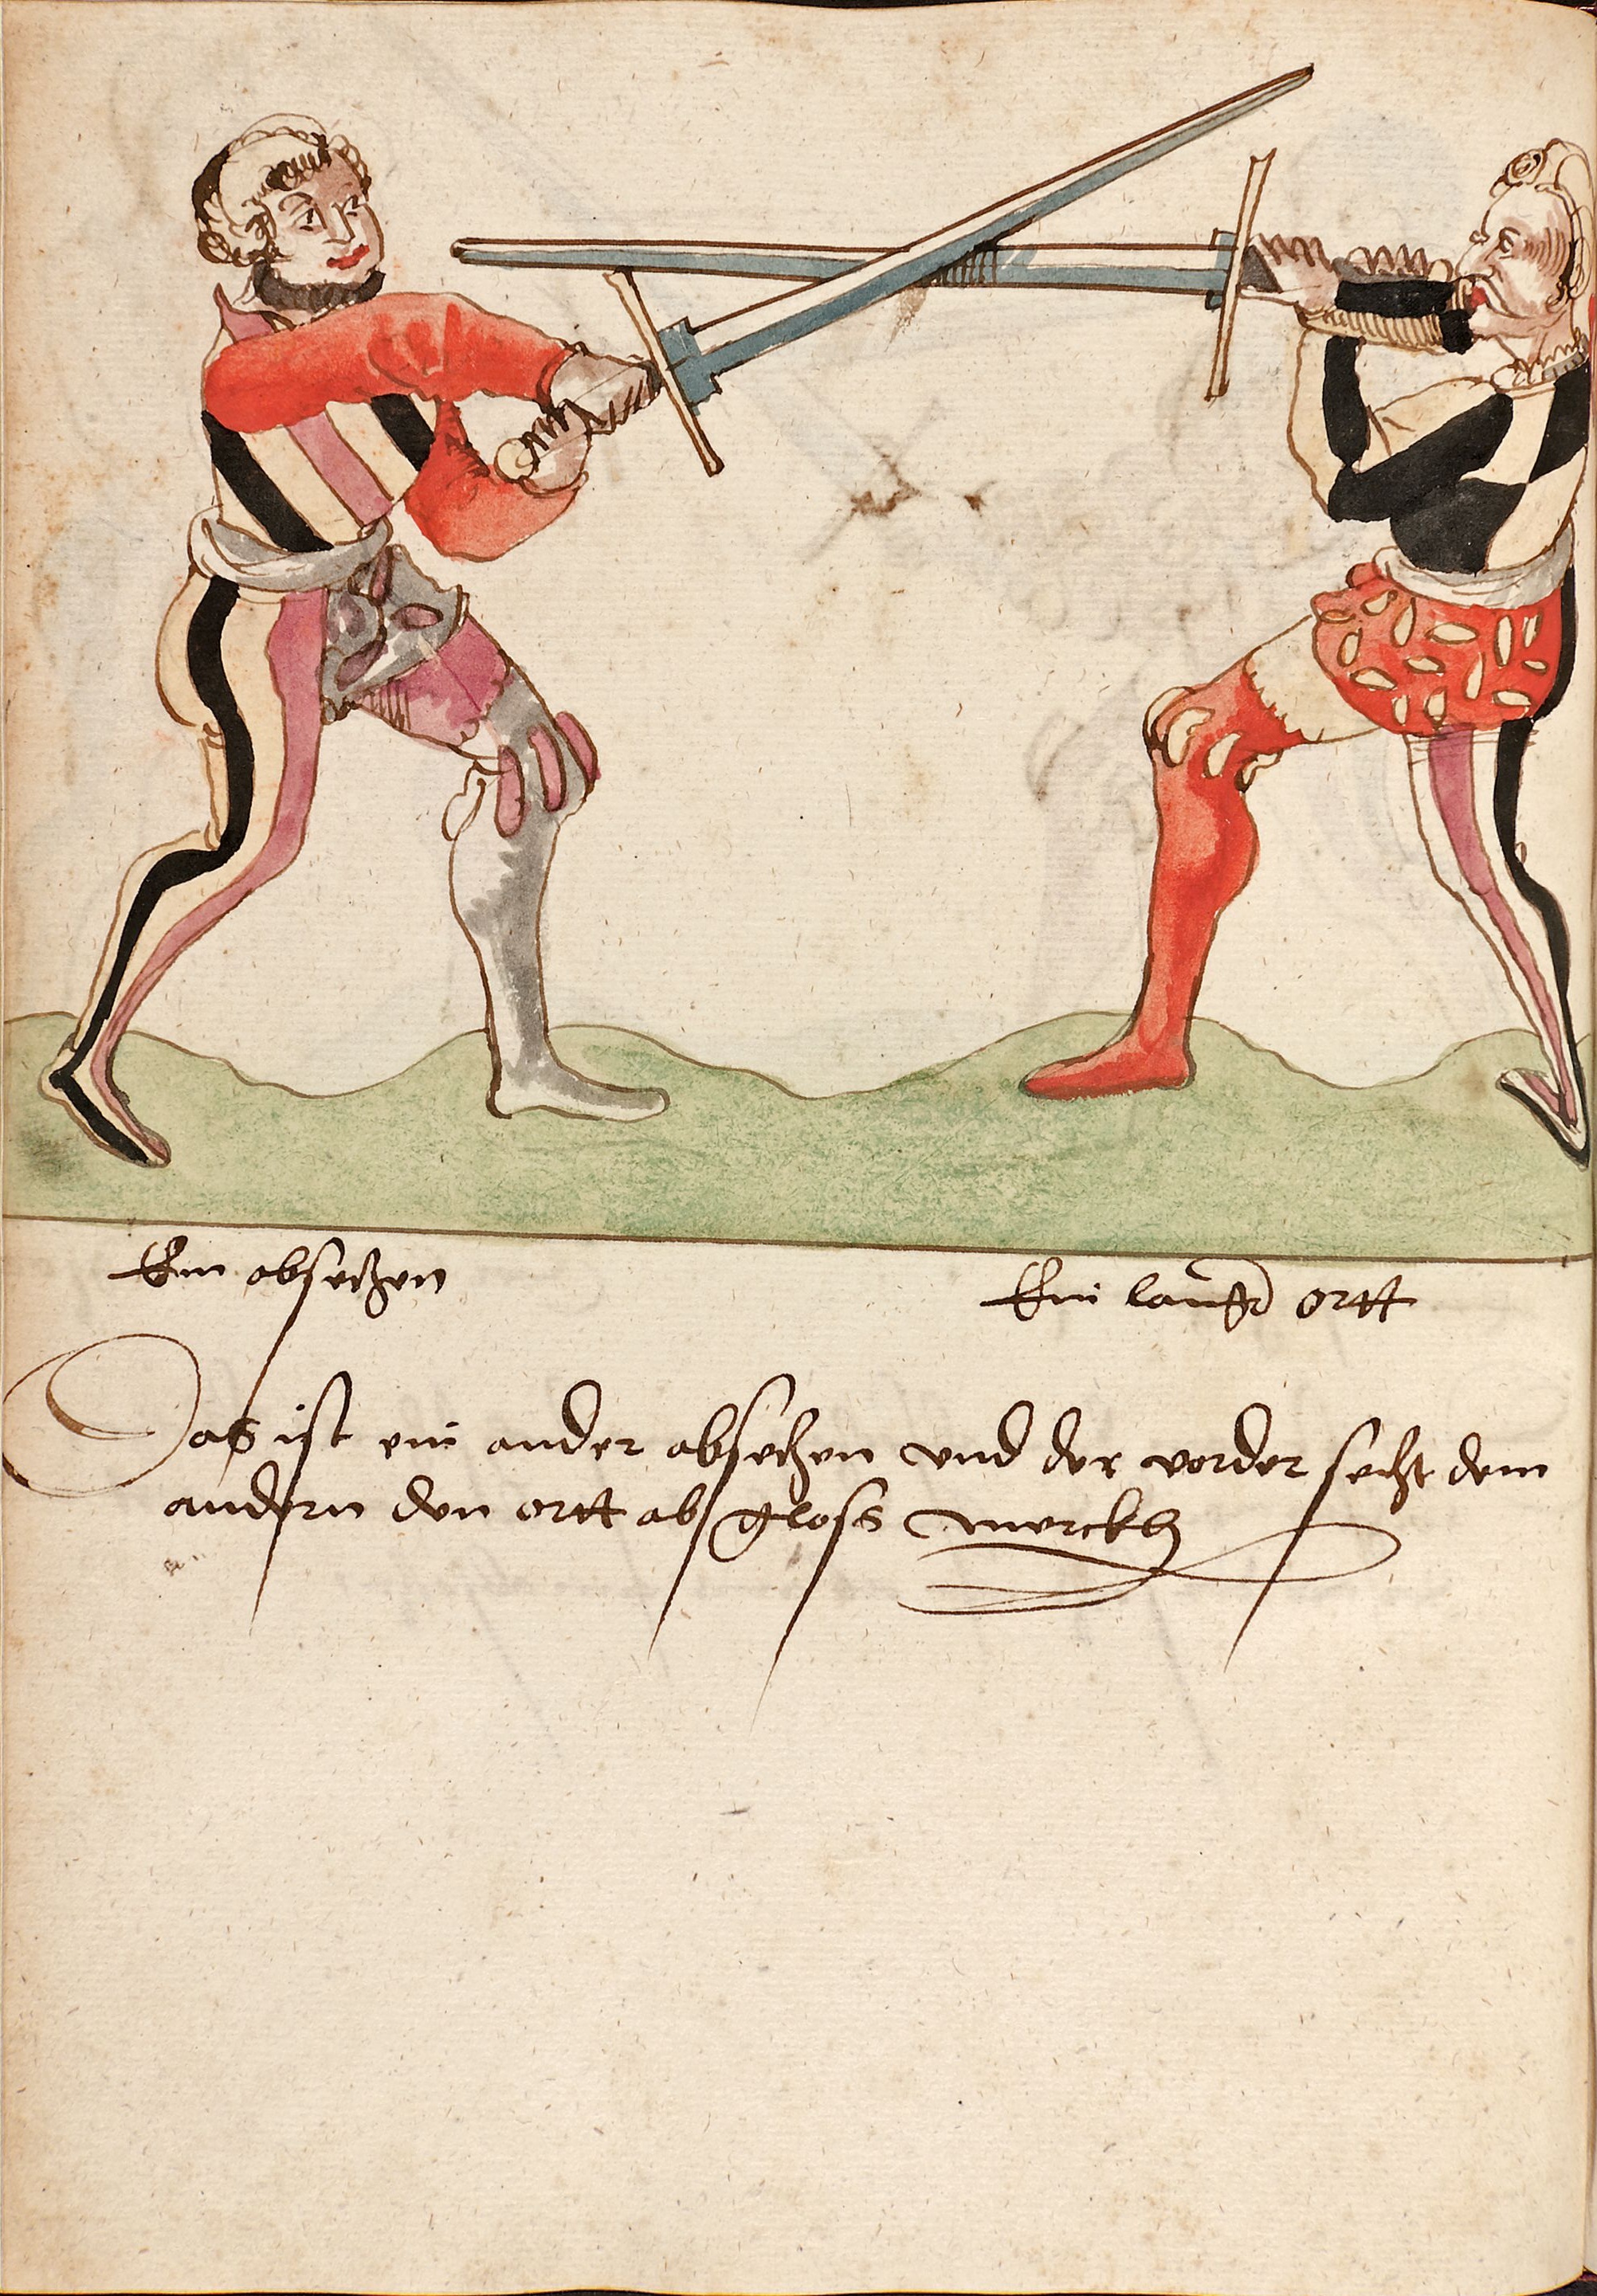 Ein absetzen
Ein langr ortt
Das ist ein ander absetzen vnd der vorder setzt dem
andern den ortt ab gloss merckh